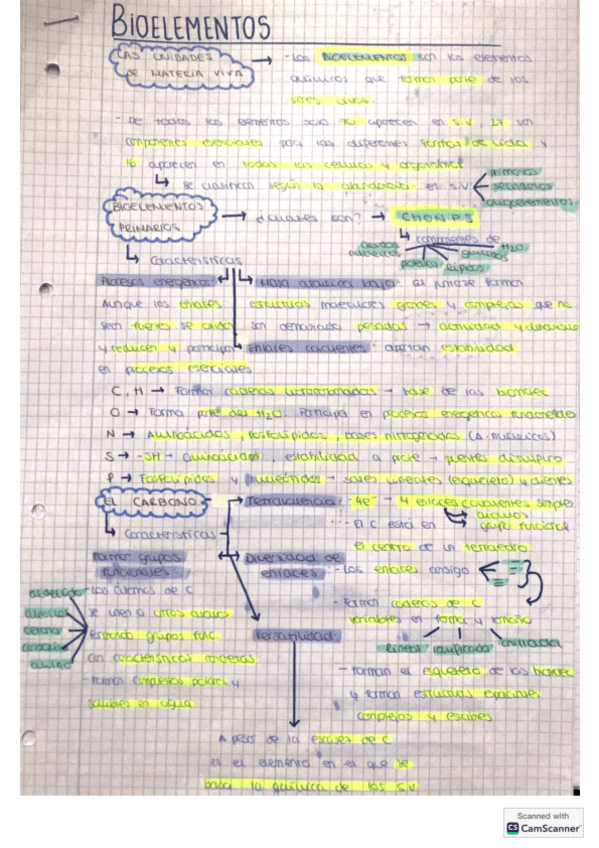 BIOELEMENTOS
LAS UNIDADES DE MATERIA VIVA → - Los BIOELEMENTOS son los elementos
químicos que forman parte de los
seres vivos.
- De todos los elementos solo 70 aparecen en S.V, 27 son
componentes esenciales para las diferentes formas de vida y
16 aparecen en todas las células y organismos
↳ se clasifican según la abundancia en S.V
primarios
secundarios
oligoelementos
BIOELEMENTOS PRIMARIOS → ¿cuáles son? → C H O N P S
↳ componentes de
ácidos nucleicos
proteínas
lípidos
glúcidos
H2O
↳ Características
Procesos energéticos
Aunque los enlaces
sean fuertes se oxidan
y reducen y participan
en procesos esenciales
Masa atómica baja: al juntarse forman
estructuras moleculares grandes y complejas que no
son demasiado pesadas →
enlaces covalentes: aportan estabilidad
C, H → Forman cadenas hidrocarbonadas → base de las biomoléc
O → Forma parte del H2O. Participa en procesos energéticos
N → Aminoácidos, fosfolípidos, bases nitrogenadas (A. nucleicos)
S → -SH → aminoácidos, estabilidad a prote → puentes disulfuro
P → Fosfolípidos y nucleótidos → sales minerales (esqueleto) y dientes
EL CARBONO
↳ Características
Tetravalencia: 4e⁻ → 4 enlaces covalentes simples
átomos
grupo funcional
- El C está en
el centro de un tetraedro
Formar grupos funcionales
- Los átomos de C
se unen a otros átomos
formando grupos func.
con características concretas
- Forman compuestos polares y
solubles en agua
Diversidad de enlaces
- Los enlaces consigo
- Forman cadenas de C
variables en forma y tamaño
lineales
ramificadas
- forman el esqueleto de las biomoléc
y forman estructuras espaciales
complejas y estables
Versatilidad
A pesar de la escasez de C
es el elemento en el que se
basa la química de los S.V
Scanned with
CS CamScanner